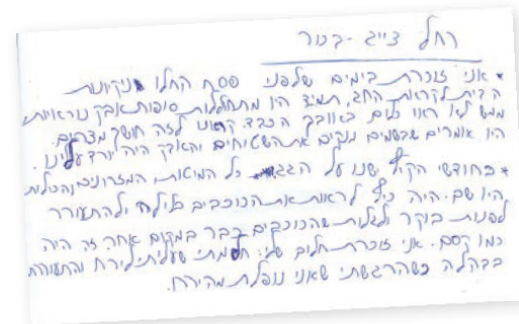 רחל צייג-בכור
* אני זוכרת בימים שלפני פסח החלו ניקיונות
הבית לקראת החג, תמיד היו מתחוללות סופות אבק נוראיות,
ממש לא ראו כלום באובך הכבד קראנו לזה חושך מצרים.
היו אומרים שבשמים מנקים את השטיחים והאבק היה יורד עלינו.
* בחודשי הקיץ ישנו על הגג כל המיטות, המזרונים והכילות
היו שם. היה כיף לראות את הכוכבים בלילה ולהתעורר
לפנות בוקר ולגלות שהכוכבים כבר במקום אחר. זה היה
כמו קסם. אני זוכרת חלום שלי: חלמתי שעליתי לירח והתעוררתי
בבהלה כשהרגשתי שאני נופלת מהירח.